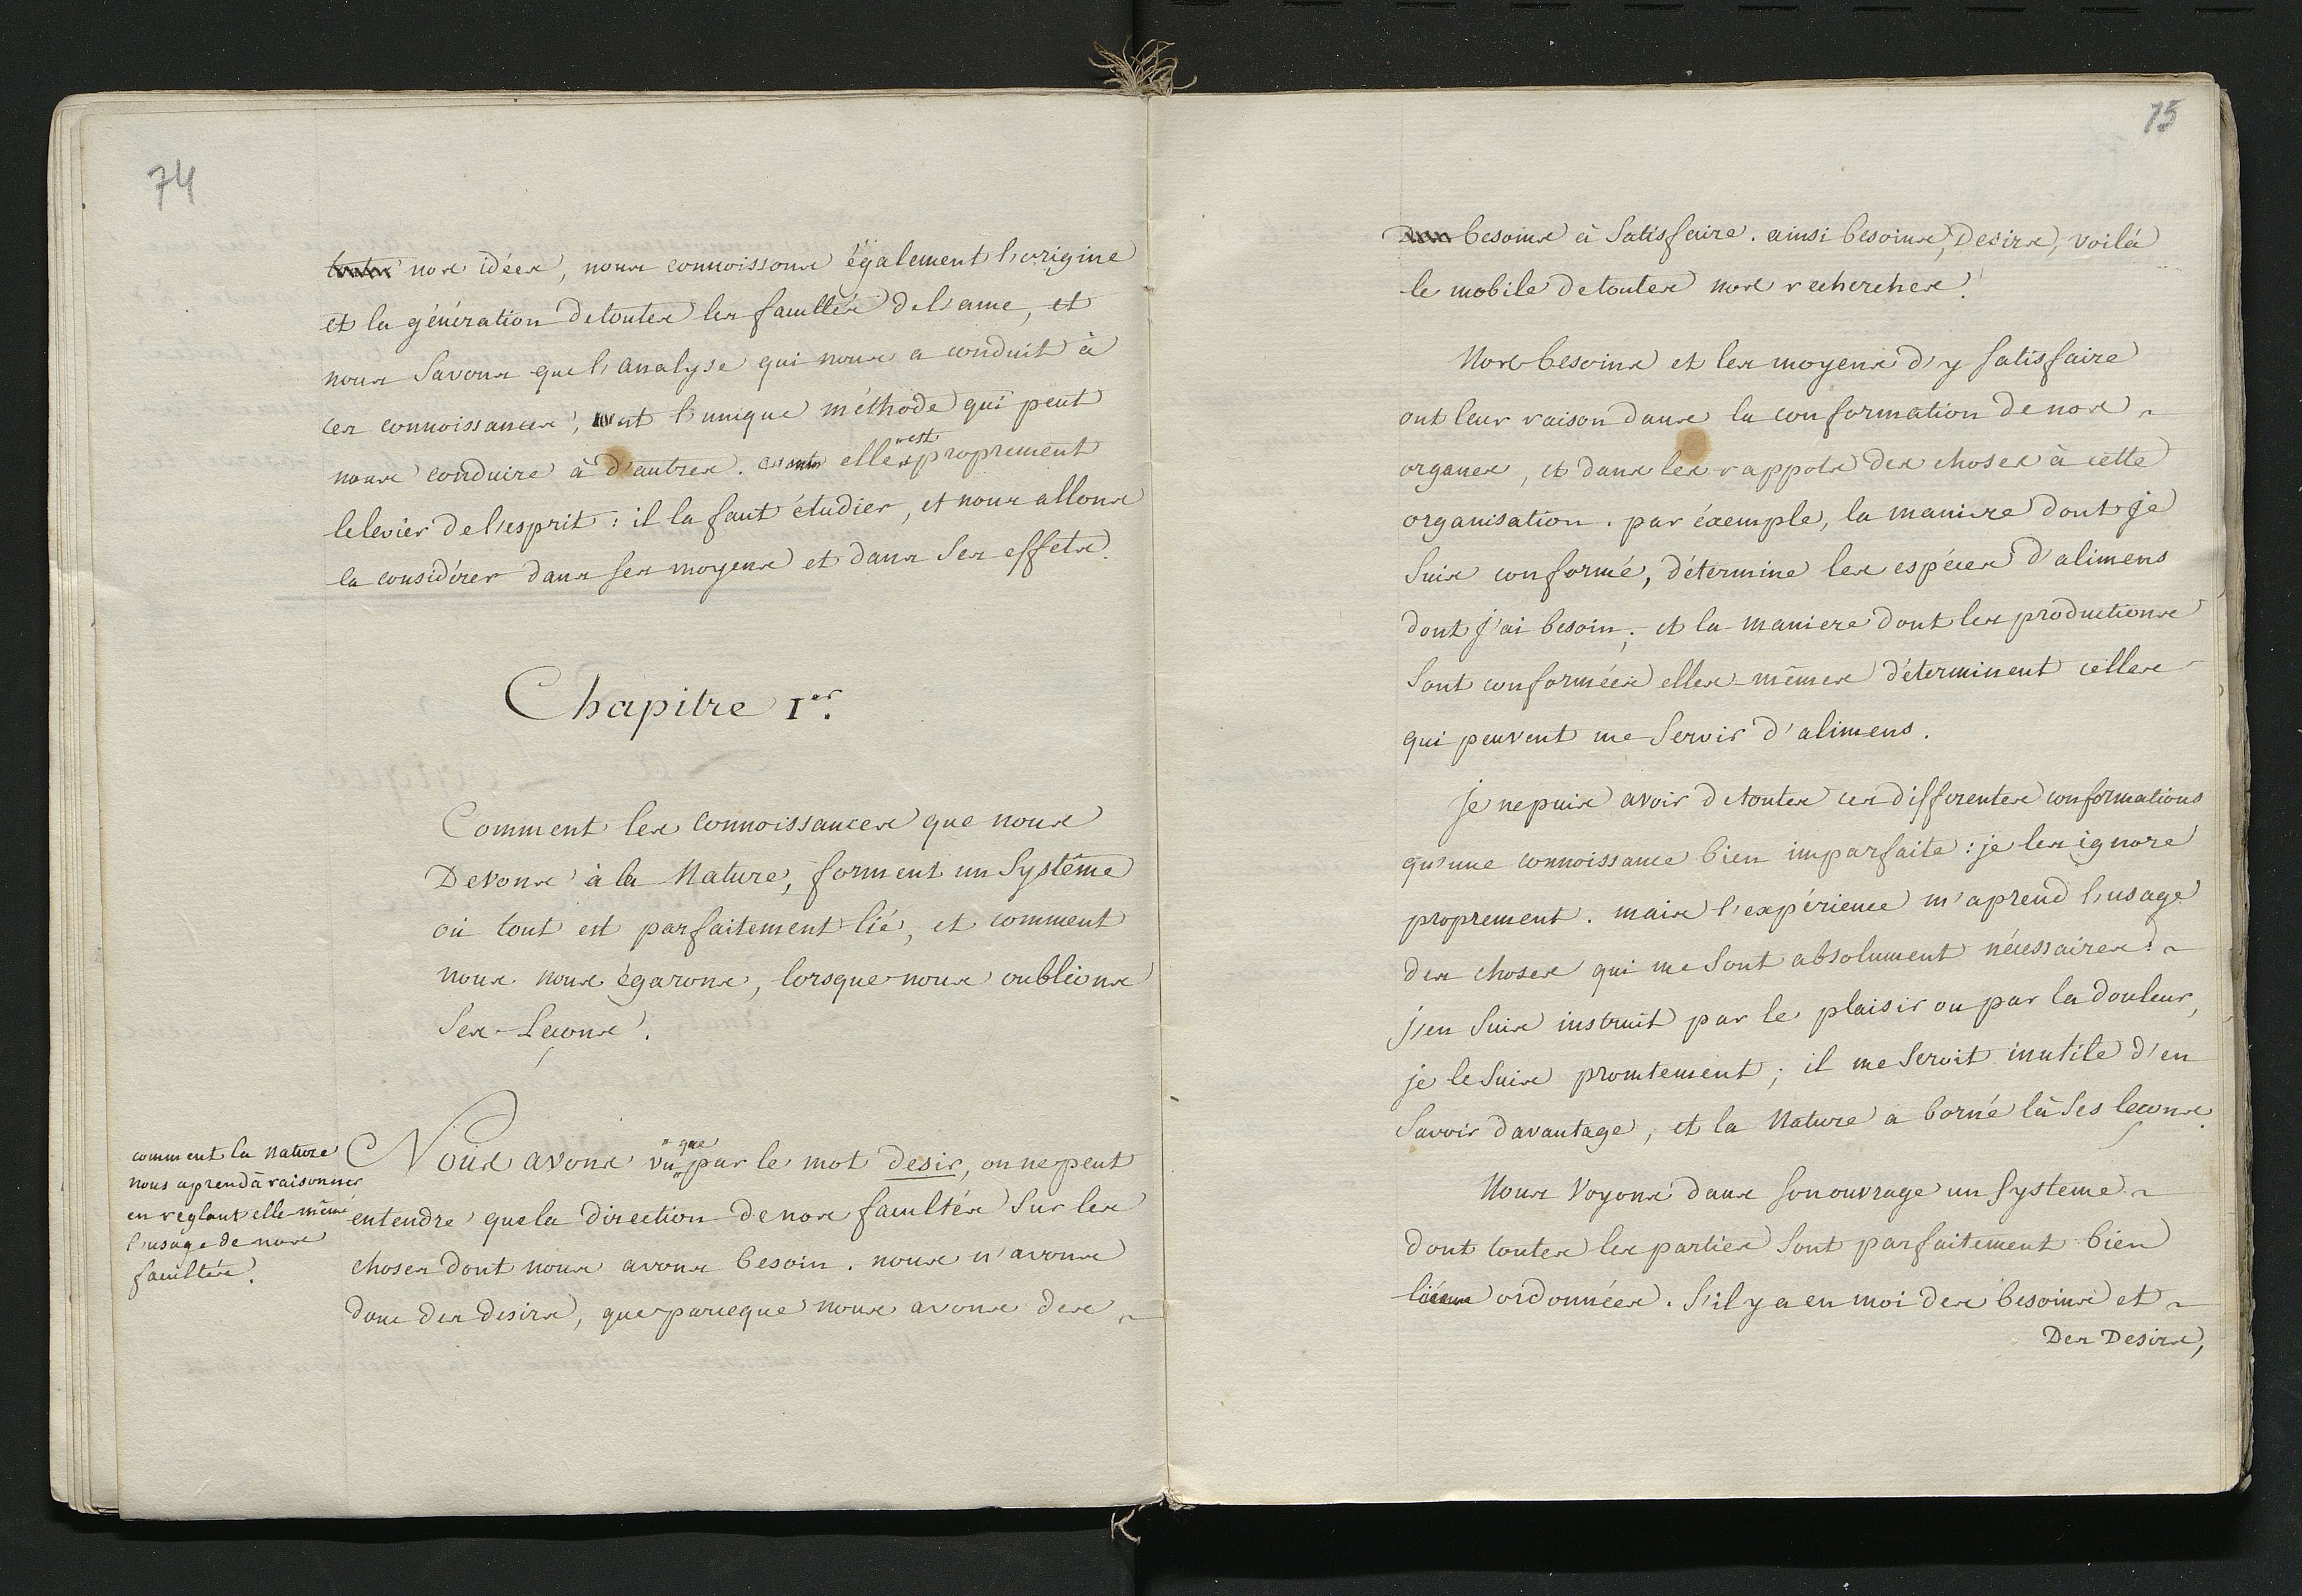 74
nos idées, nous connoissons également l'origine
et la génération de toutes les facultés de l'ame, et
nous Savons que l'analyse qui nous a conduit à
ces connoissances, est l'unique méthode qui peut
nous conduire à d'autres. elle est proprement
le levier de l'esprit : il la faut étudier, et nous allons
la considérer dans ses moyens et dans Ses effets.
Chapitre 1er.
Comment les connoissances que nous
Devons à la Nature, forment un Systême
où tout est parfaitement lié, et comment
nous nous égarons, lorsque nous oublions
Ses Leçons.
comment la nature
nous aprend à raisonner
en réglant elle-même
l'usage de nos
facultés.
Nous avons vu que par le mot desir, on ne peut
entendre que la direction de nos facultés Sur les
choses dont nous avons besoin. nous n'avons
donc des desirs, que parceque nous avons des
75
besoins à Satisfaire. ainsi besoins, Desirs, voilà
le mobile de toutes nos recherches.
Nos besoins et les moyens d'y Satisfaire
ont leur raison dans la conformation de nos
organes, et dans les rappots des choses à cette
organisation. par éxemple, la maniere dont je
Suis conformé, détermine les espéces d'alimens
dont j'ai besoin; et la maniere dont les productions
Sont conformées elles-mêmes déterminent celles
qui peuvent me Servir d'alimens.
je ne puis avoir de toutes ces differentes conformations
qu'une connoissance bien imparfaite : je les ignore
proprement. mais l'expérience m'aprend l'usage
des choses qui me Sont absolument nécessaires.
j'en Suis instruit par le plaisir ou par la douleur,
je le Suis promtement ; il me Seroit inutile d'en
Savoir davantage, et la Nature a borné là Ses leçons.
Nous Voyons dans Son ouvrage un Systeme
dont toutes les parties Sont parfaitement bien
ordonnées. S'il y a en moi des besoins et
Des Desirs,